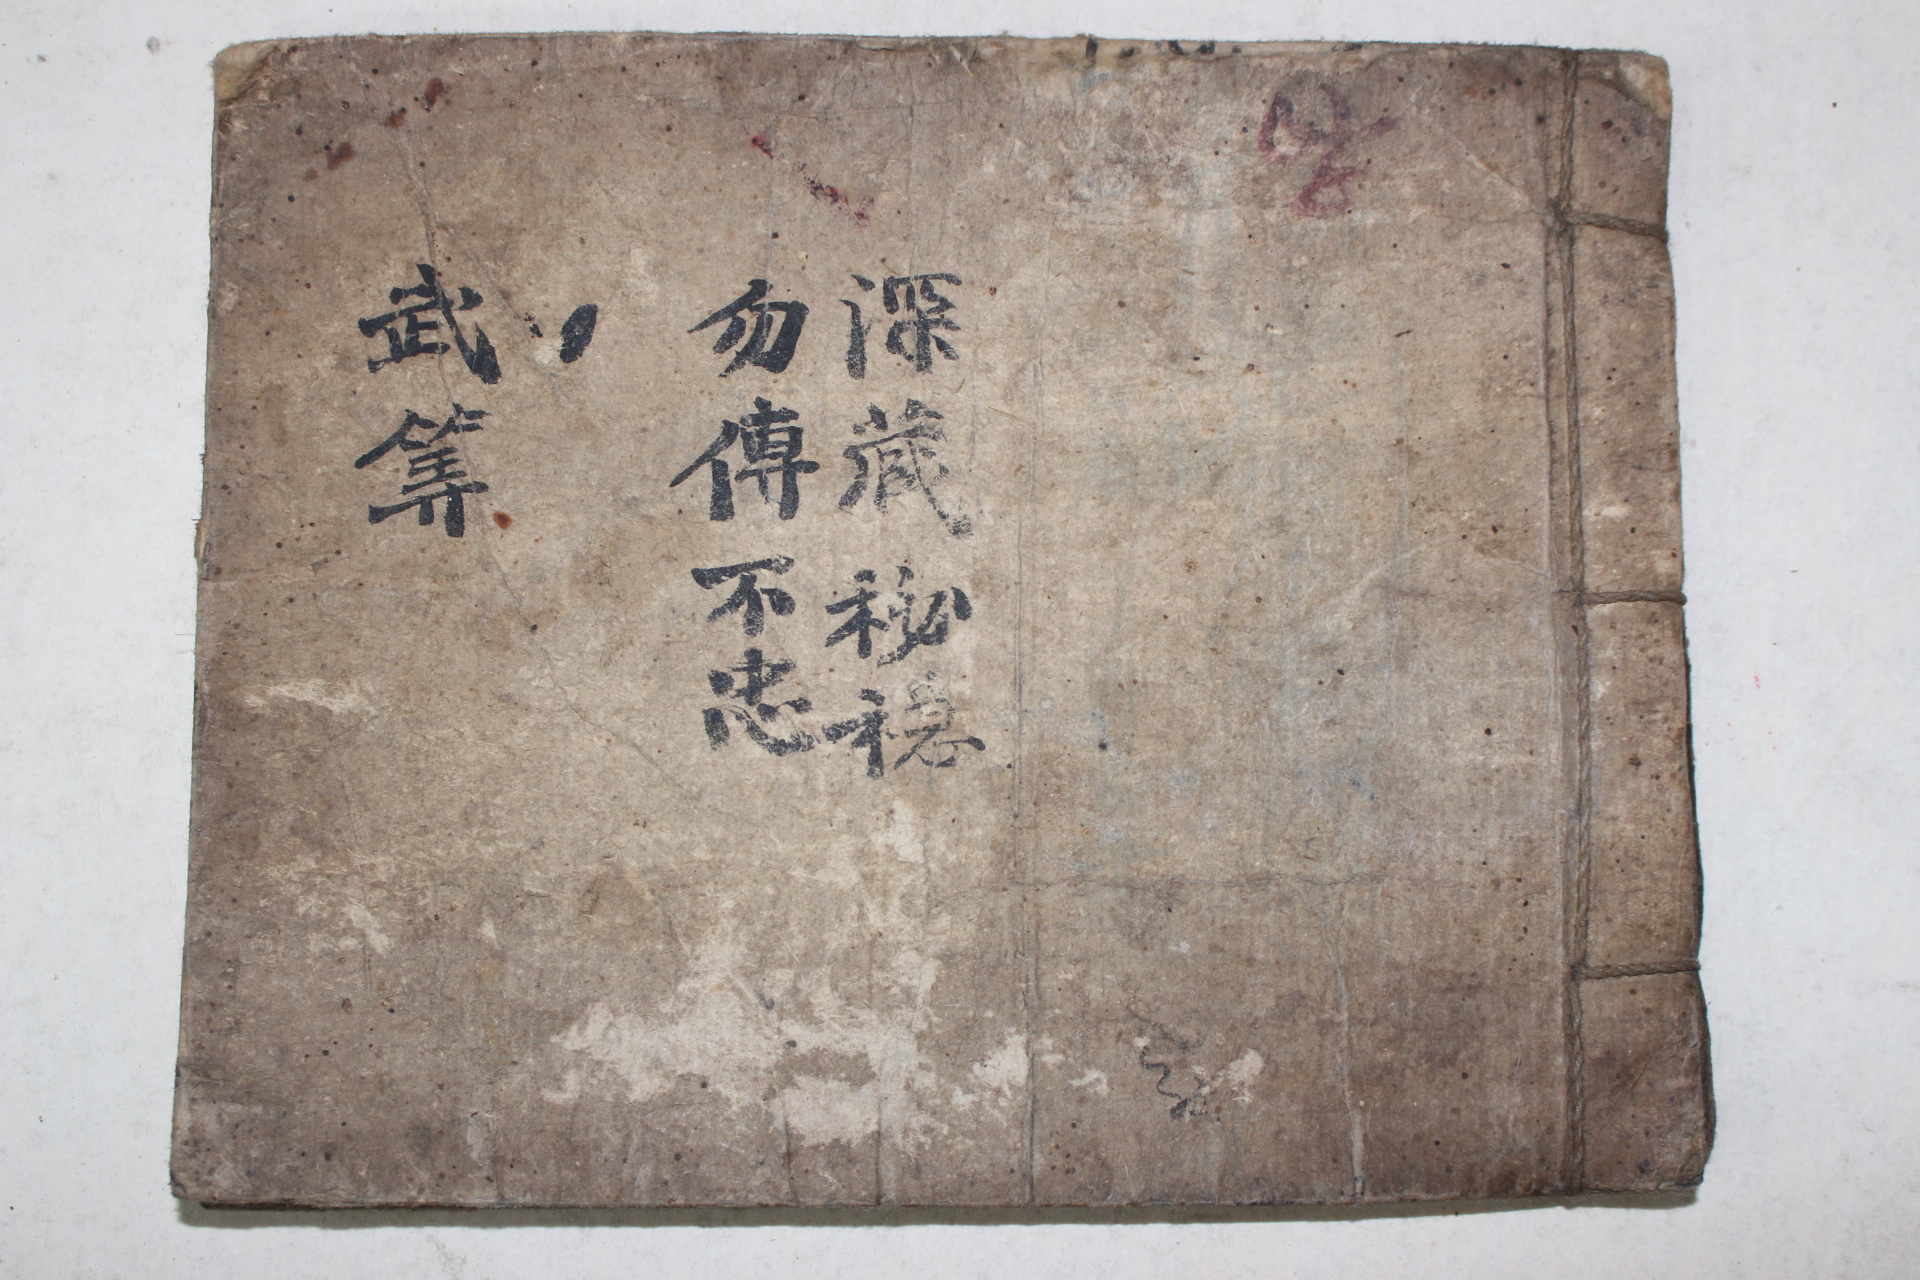 深藏秘穏
勿傳不忠
武筭